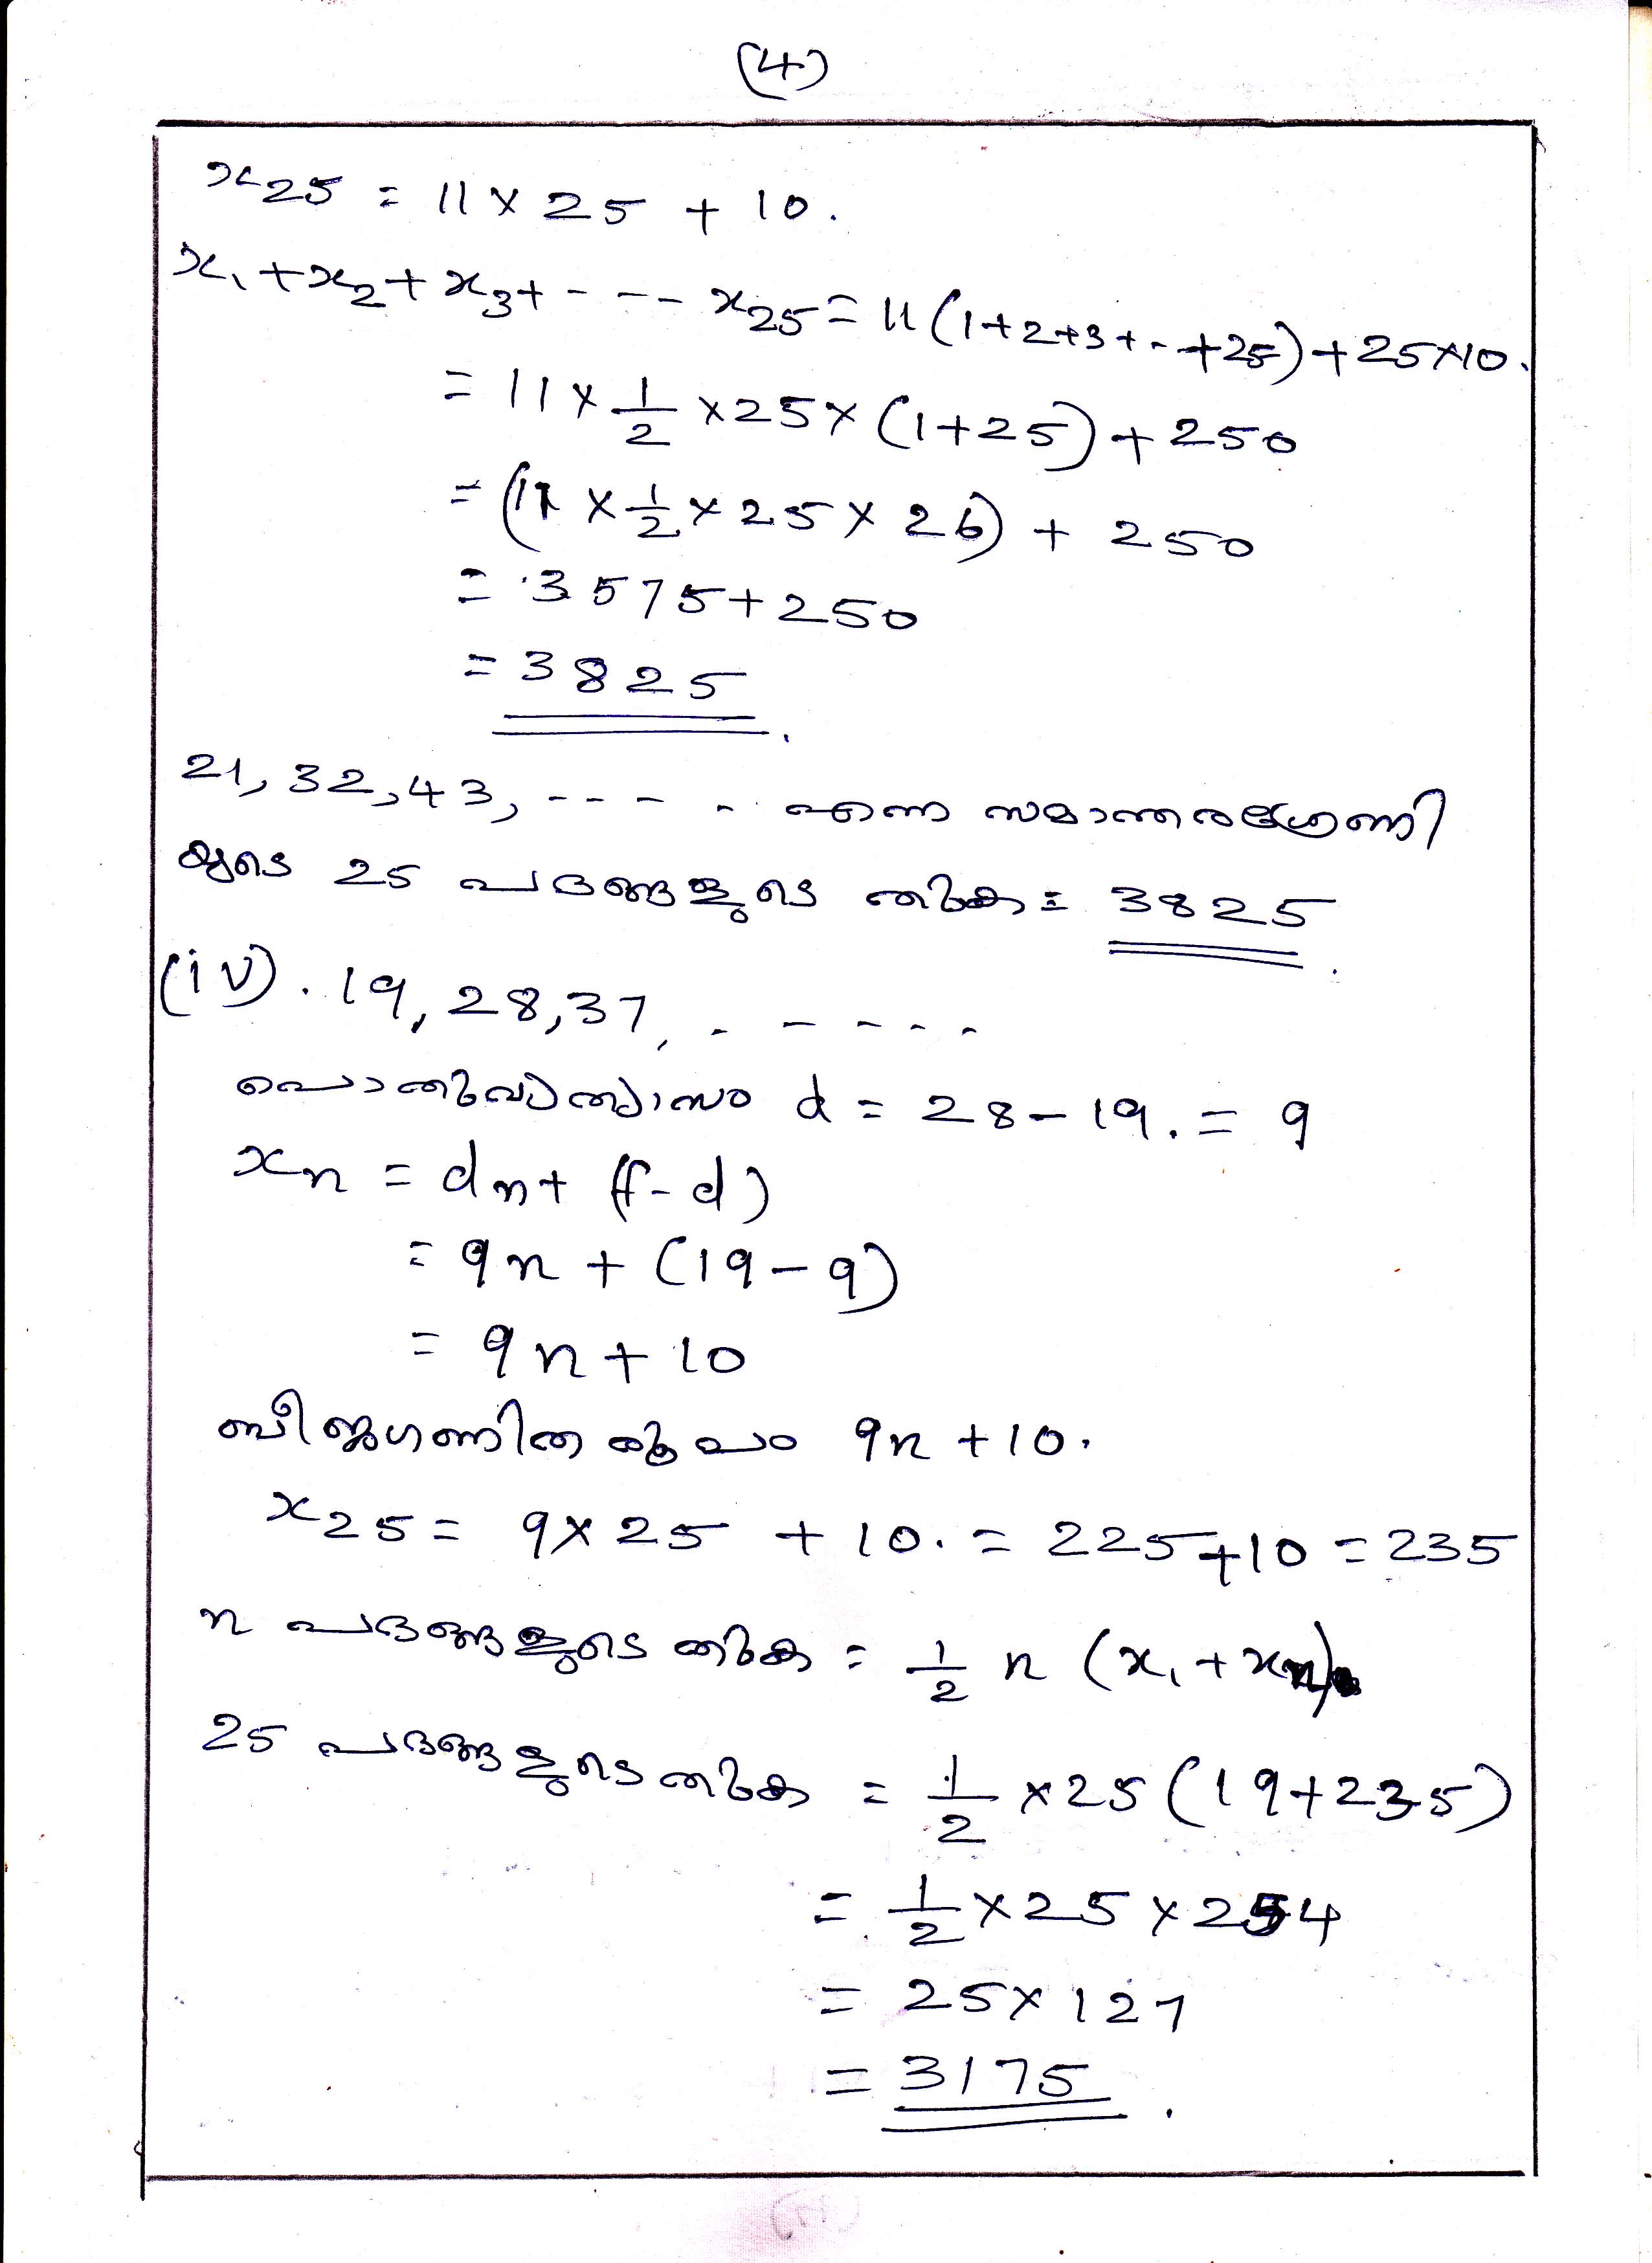 (4)
x25 = 11 × 25 + 10.
x1 + x2 + x3 + - -- x25 = 11 (1+2+3+--+25) + 25×10.
= 11 × 1/2 × 25 × (1+25) + 250
= (11 × 1/2 × 25 × 26) + 250
= 3575+250
= 3825
21, 32, 43, ---- - എന്ന സമാന്തരശ്രേണി
യുടെ 25 പദങ്ങളുടെ തുക = 3825.
(iv). 19, 28, 37, - - - - -
പൊതുവ്യത്യാസം d = 28 - 19. = 9
xn = dn + (f-d)
= 9n + (19-9)
= 9n + 10
ബീജഗണിത രൂപം 9n + 10.
x25 = 9×25 + 10. = 225+10 = 235
n പദങ്ങളുടെ തുക = 1/2 n (x1 + xn)
25 പദങ്ങളുടെ തുക = 1/2 × 25 (19+235)
= 1/2 × 25 × 254
= 25 × 127
= 3175.